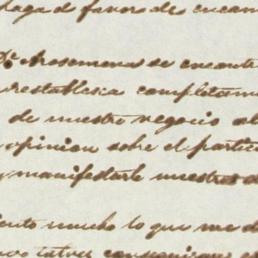 haga el favor de encam
Dr. Arosemena se encuentr
restablesca completam
de nuestro negocio al
opinion sobre el partic
manifestarle nuestros d
ento mucho lo que me d